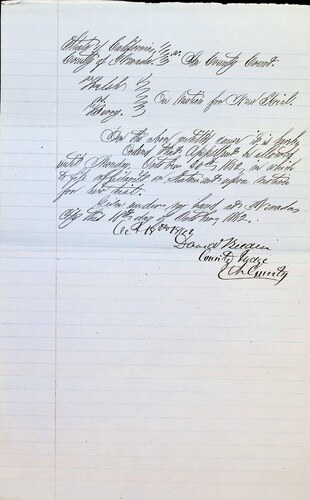 State of California
County of Nevada ss In County Court.
Welch
vs.
Berry. On Motion for New Trial.
In the above entitled cause it is hereby
Ordered that Appellant be allowed
until Monday October 1862, in which
to file affidavits or statement upon motion
for new trial.
Given under my hand at Nevada
City this day of October, 1862.
Oct 1862
David Belden
County Judge
County